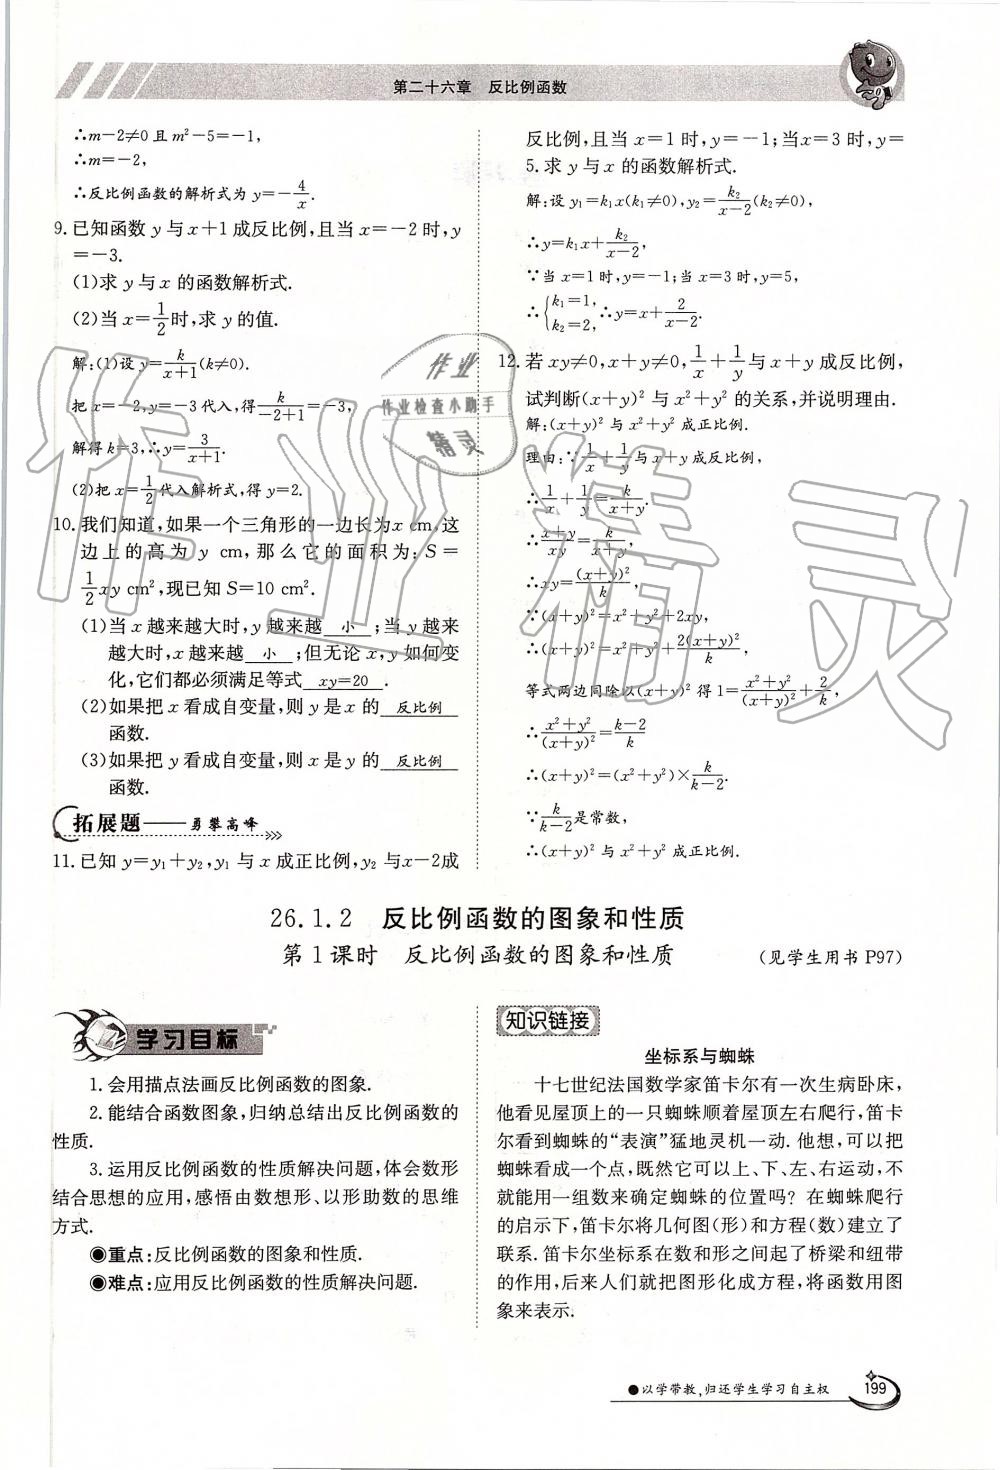 第二十六章　反比例函数
∴m－2≠0 且 m²－5＝－1,
∴m＝－2,
∴反比例函数的解析式为 y＝－4/x.
9. 已知函数 y 与 x＋1 成反比例,且当 x＝－2 时,y
＝－3.
(1)求 y 与 x 的函数解析式.
(2)当 x＝1/2时,求 y 的值.
解:(1)设 y＝k/(x＋1)(k≠0).
把 x＝－2,y＝－3 代入,得k/(－2＋1)＝－3,
解得 k＝3,∴y＝3/(x＋1).
(2)把 x＝1/2代入解析式,得 y＝2.
10. 我们知道,如果一个三角形的一边长为x cm,这
边上的高为 y cm,那么它的面积为:S＝
1/2xy cm²,现已知 S＝10 cm².
(1)当 x 越来越大时,y 越来越 小 ;当 y 越来
越大时,x 越来越 小 ;但无论 x,y 如何变
化,它们都必须满足等式 xy＝20 .
(2)如果把 x 看成自变量,则 y 是 x 的 反比例
函数.
(3)如果把 y 看成自变量,则 x 是 y 的 反比例
函数.
拓展题——勇攀高峰
11. 已知 y＝y₁＋y₂,y₁ 与 x 成正比例,y₂ 与x－2成
反比例,且当 x＝1 时,y＝－1;当x＝3 时,y＝
5. 求 y 与 x 的函数解析式.
解:设 y₁＝k₁x(k₁≠0),y₂＝k₂/(x－2)(k₂≠0),
∴y＝k₁x＋k₂/(x－2),
∵当 x＝1时,y＝－1;当 x＝3 时,y＝5,
∴{k₁＝1, k₂＝2, ∴y＝x＋2/(x－2).
12. 若 xy≠0,x＋y≠0,1/x＋1/y与 x＋y 成反比例,
试判断(x＋y)² 与 x²＋y² 的关系,并说明理由.
解:(x＋y)² 与 x²＋y² 成正比例.
理由:∵1/x＋1/y与 x＋y 成反比例,
∴1/x＋1/y＝k/(x＋y).
∴(x＋y)/xy＝k/(x＋y),
∴xy＝(x＋y)²/k,
∵(x＋y)²＝x²＋y²＋2xy,
∴(x＋y)²＝x²＋y²＋2(x＋y)²/k,
等式两边同除以(x＋y)² 得 1＝(x²＋y²)/(x＋y)²＋2/k,
∴(x²＋y²)/(x＋y)²＝(k－2)/k
∴(x＋y)²＝(x²＋y²)×k/(k－2).
∵k/(k－2)是常数,
∴(x＋y)² 与 x²＋y² 成正比例.
26.1.2　反比例函数的图象和性质
第 1 课时　反比例函数的图象和性质　(见学生用书 P97)
学习目标
1. 会用描点法画反比例函数的图象.
2. 能结合函数图象,归纳总结出反比例函数的
性质.
3. 运用反比例函数的性质解决问题,体会数形
结合思想的应用,感悟由数想形、以形助数的思维
方式.
◉重点:反比例函数的图象和性质.
◉难点:应用反比例函数的性质解决问题.
知识链接
坐标系与蜘蛛
十七世纪法国数学家笛卡尔有一次生病卧床,
他看见屋顶上的一只蜘蛛顺着屋顶左右爬行,笛卡
尔看到蜘蛛的“表演”猛地灵机一动. 他想,可以把
蜘蛛看成一个点,既然它可以上、下、左、右运动,不
就能用一组数来确定蜘蛛的位置吗? 在蜘蛛爬行
的启示下,笛卡尔将几何图(形)和方程(数)建立了
联系. 笛卡尔坐标系在数和形之间起了桥梁和纽带
的作用,后来人们就把图形化成方程,将函数用图
象来表示.
●以学带教,归还学生学习自主权
199
作业
作业检查小助手
精灵
作业精灵